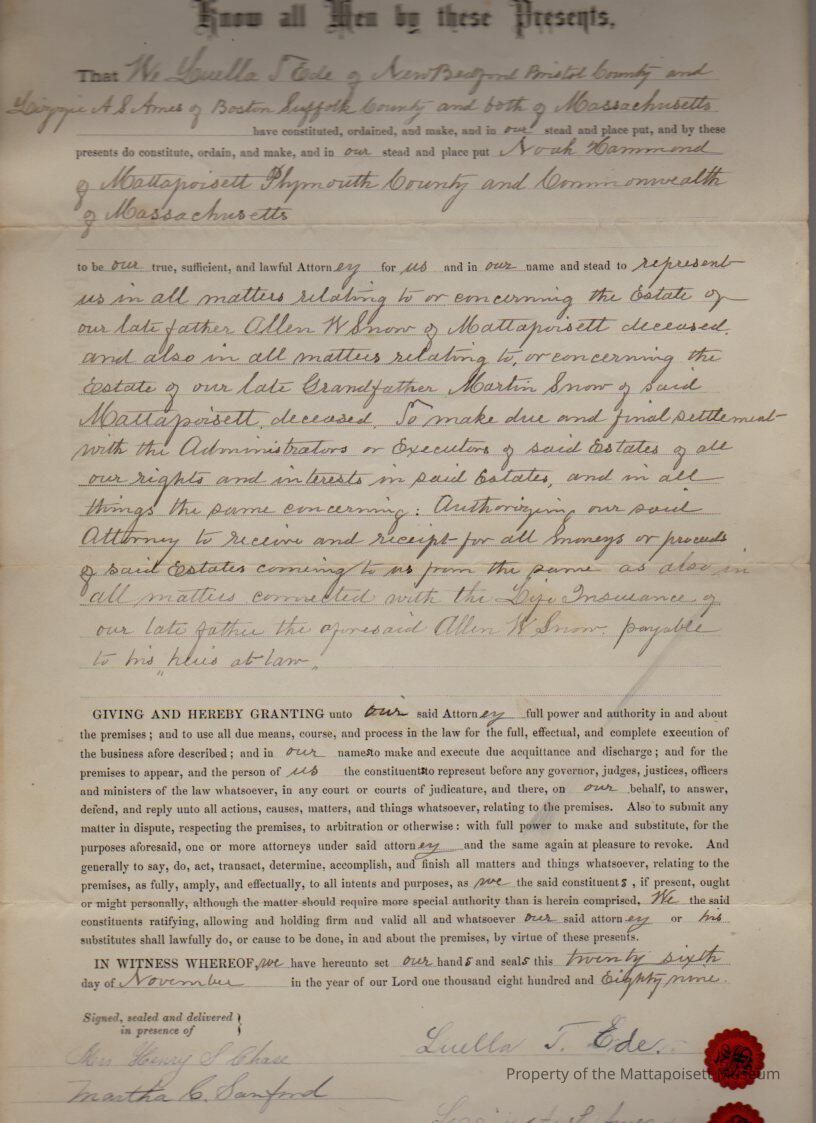 Know all Men by these Presents,
That We Luella T Ede of New Bedford Bristol County and
Lizzie A S Ames of Boston Suffolk County and both of Massachusetts
have constituted, ordained, and make, and in our stead and place put, and by these
presents do constitute, ordain, and make, and in our stead and place put Noah Hammond
of Mattapoisett Plymouth County and Commonwealth
of Massachusetts
to be our true, sufficient, and lawful Attorney for us and in our name and stead to represent
us in all matters relating to or concerning the Estate of
our late father Allen W Snow of Mattapoisett deceased.
and also in all matters relating to, or concerning the
Estate of our late Grandfather Martin Snow of said
Mattapoisett, deceased, To make due and final settlement
with the Administrators or Executors of said Estates of all
our rights and interests in said Estates, and in all
things the same concerning: Authorizing our said
Attorney to receive and receipt for all moneys or proceeds
of said Estates coming to us from the same as also in
all matters connected with the Life Insurance of
our late father the aforesaid Allen W Snow. payable
to his "heirs at law"
GIVING AND HEREBY GRANTING unto our said Attorney full power and authority in and about
the premises; and to use all due means, course, and process in the law for the full, effectual, and complete execution of
the business afore described; and in our names to make and execute due acquittance and discharge; and for the
premises to appear, and the person of us the constituents to represent before any governor, judges, justices, officers
and ministers of the law whatsoever, in any court or courts of judicature, and there, on our behalf, to answer,
defend, and reply unto all actions, causes, matters, and things whatsoever, relating to the premises. Also to submit any
matter in dispute, respecting the premises, to arbitration or otherwise: with full power to make and substitute, for the
purposes aforesaid, one or more attorneys under said attorney and the same again at pleasure to revoke. And
generally to say, do, act, transact, determine, accomplish, and finish all matters and things whatsoever, relating to the
premises, as fully, amply, and effectually, to all intents and purposes, as we the said constituents, if present, ought
or might personally, although the matter should require more special authority than is herein comprised, We the said
constituents ratifying, allowing and holding firm and valid all and whatsoever our said attorney or his
substitutes shall lawfully do, or cause to be done, in and about the premises, by virtue of these presents.
IN WITNESS WHEREOF, we have hereunto set our hands and seals this twenty sixth
day of November in the year of our Lord one thousand eight hundred and Eighty nine.
Signed, sealed and delivered
in presence of
Mrs Henry S Chase
Luella T. Ede.
Property of the Mattapoisett Museum
Martha C. Sanford